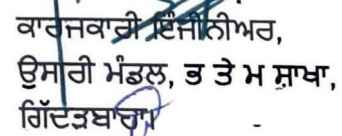 ਕਾਰਜਕਾਰੀ ਇੰਜੀਨੀਅਰ,
ਉਸਾਰੀ ਮੰਡਲ, ਭ ਤੇ ਮ ਸ਼ਾਖਾ,
ਗਿੱਦੜਬਾਹਾ।